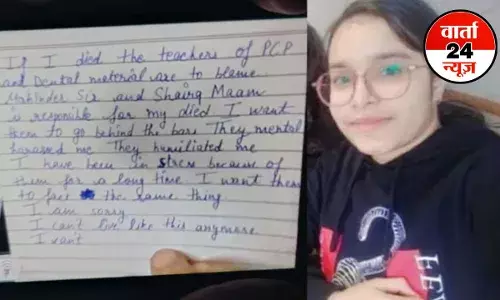 If I died the teachers of PCP
and Dental material are to blame.
Mahinder Sir and Shairg Maam
is responible for my died I want
them to go behind the bars They mental
harased me They humiliated me
I have been in stress because of
them for a long time. I want them
to face the same thing.
I am sorry
I can't live like this anymore
I can't
वार्ता
24
न्यूज़
LEE